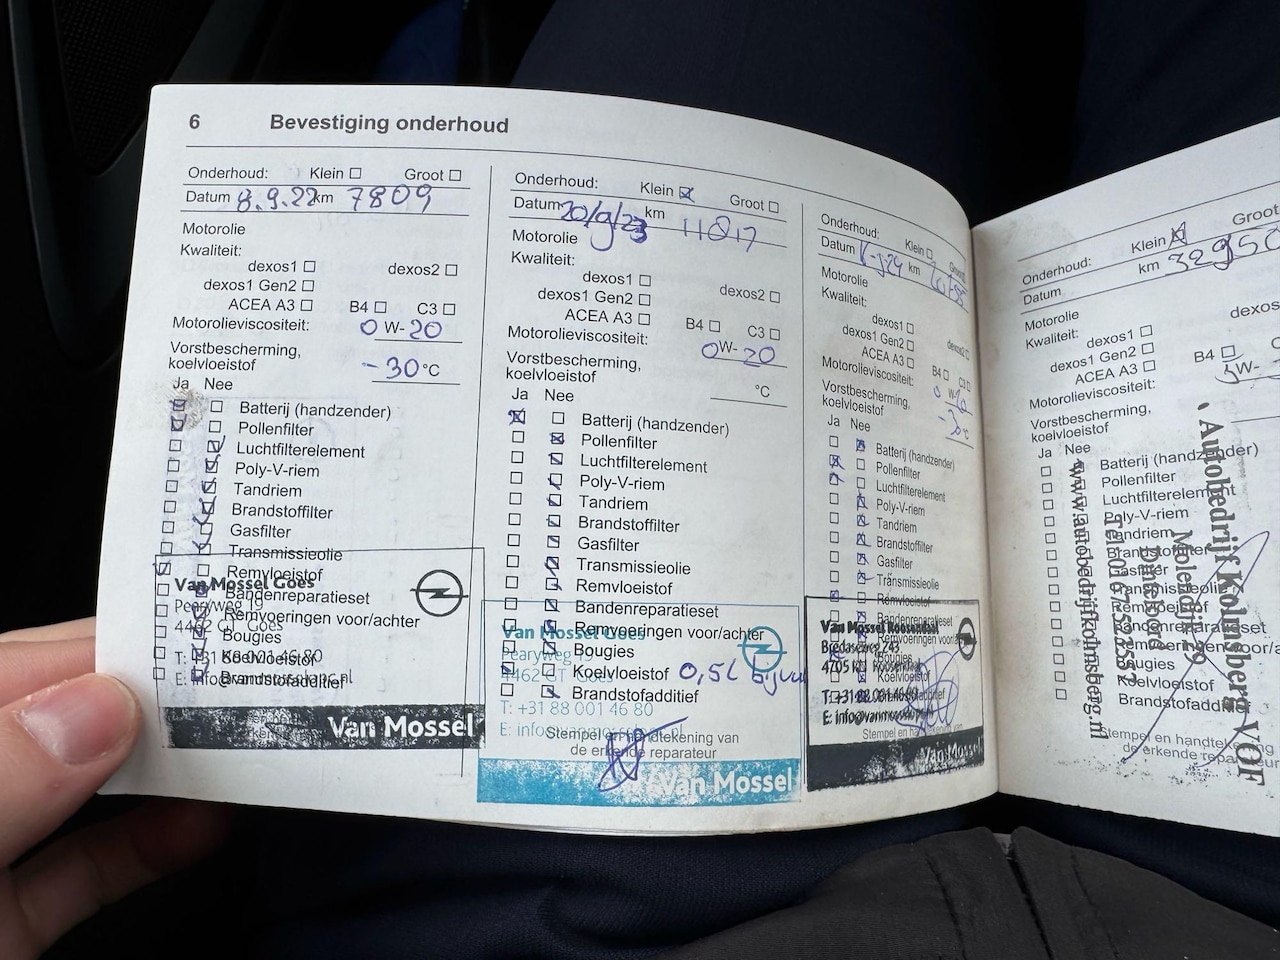 6 Bevestiging onderhoud
Onderhoud: Klein Groot
Datum 8.9.22 km 7809
Motorolie
Kwaliteit:
dexos1 dexos2
dexos1 Gen2
ACEA A3 B4 C3
Motorolieviscositeit: 0 W- 20
Vorstbescherming,
koelvloeistof -30 °C
Ja Nee
Batterij (handzender)
Pollenfilter
Luchtfilterelement
Poly-V-riem
Tandriem
Brandstoffilter
Gasfilter
Transmissieolie
Remvloeistof
Bandenreparatieset
Remvoeringen voor/achter
Bougies
Koelvloeistof
Brandstofadditief
Van Mossel Goes
Pearyweg 19
4462 Goes
Van Mossel
Onderhoud: Klein Groot
Datum 20/9/23 km 11817
Motorolie
Kwaliteit:
dexos1 dexos2
dexos1 Gen2
ACEA A3 B4 C3
Motorolieviscositeit: 0 W- 20
Vorstbescherming,
koelvloeistof °C
Ja Nee
Batterij (handzender)
Pollenfilter
Luchtfilterelement
Poly-V-riem
Tandriem
Brandstoffilter
Gasfilter
Transmissieolie
Remvloeistof
Bandenreparatieset
Remvoeringen voor/achter
Bougies
Koelvloeistof 0,5L
Brandstofadditief
Van Mossel Goes
Pearyweg 19
4462 GT Goes
T: +31 88 001 46 80
Stempel en handtekening van
de erkende reparateur
Van Mossel
Onderhoud: Klein Groot
Datum km
Motorolie
Kwaliteit:
dexos1 dexos2
dexos1 Gen2
ACEA A3 B4 C3
Motorolieviscositeit: 0 W-
Vorstbescherming,
koelvloeistof -30 °C
Ja Nee
Batterij (handzender)
Pollenfilter
Luchtfilterelement
Poly-V-riem
Tandriem
Brandstoffilter
Gasfilter
Transmissieolie
Remvloeistof
Bandenreparatieset
Remvoeringen
Bougies
Koelvloeistof
Van Mossel Roosendaal
Bredaseweg 243
Van Mossel
Onderhoud: Klein Groot
Datum km
Motorolie
Kwaliteit:
dexos1
dexos1 Gen2
ACEA A3 B4
Motorolieviscositeit: W-
Vorstbescherming,
koelvloeistof
Ja Nee
Batterij (handzender)
Pollenfilter
Luchtfilterelement
Poly-V-riem
Tandriem
Brandstoffilter
Gasfilter
Transmissieolie
Remvloeistof
Bandenreparatieset
Bougies
Koelvloeistof
Brandstofadditief
Stempel en
de erkende
Autobedrijf Kolmsberg VOF
Molendijk 29
Dinteloord
www.autobedrijfkolmsberg.nl